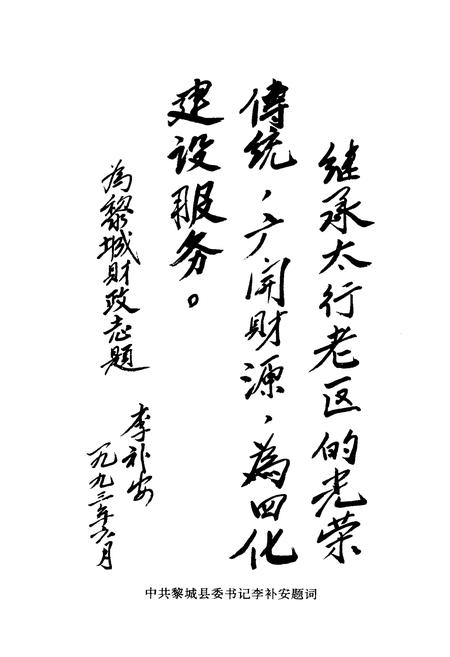 继承太行老区的光荣
傳统，广開财源，為四化
建设服务。
为黎城财政志题
李补安
一九九三年六月
中共黎城县委书记李补安题词